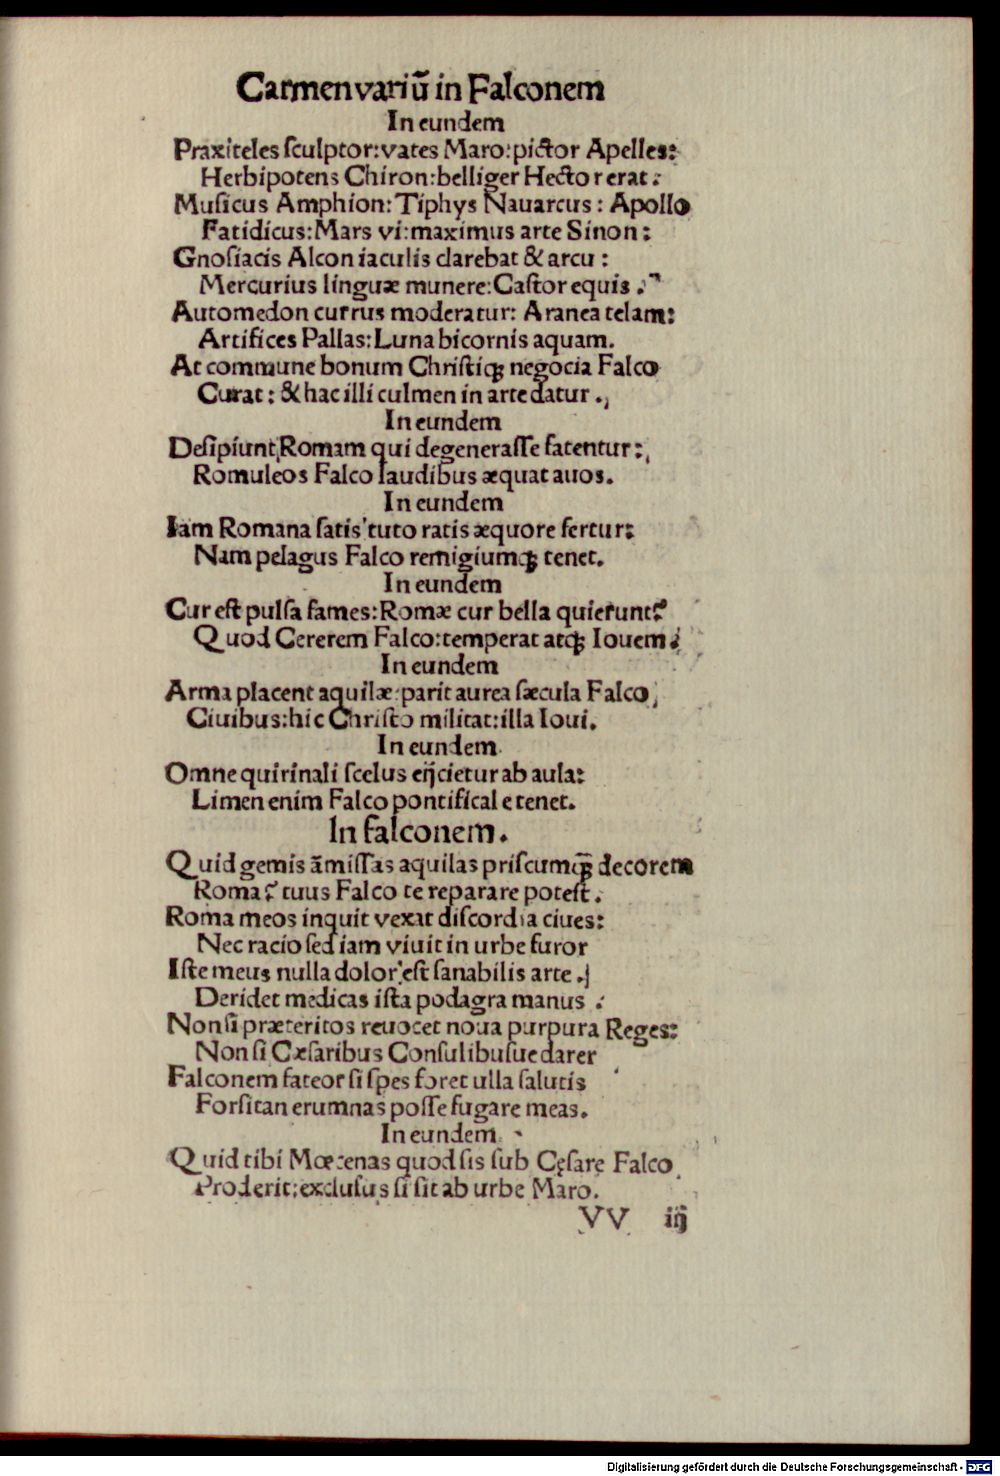 Carmen variũ in Falconem
In eundem
Praxiteles ſculptor:vates Maro:pictor Apelles:
Herbipotens Chiron:belliger Hector erat:
Muſicus Amphion:Tiphys Nauarcus: Apollo
Fatidicus:Mars vi:maximus arte Sinon:
Gnoſiacis Alcon iaculis clarebat & arcu:
Mercurius linguæ munere:Caſtor equis.
Automedon currus moderatur: Aranea telam:
Artifices Pallas:Luna bicornis aquam.
At commune bonum Chriſtiqꝫ negocia Falco
Curat: & hac illi culmen in arte datur.
In eundem
Deſipiunt Romam qui degeneraſſe fatentur:
Romuleos Falco laudibus æquat auos.
In eundem
Iam Romana ſatis tuto ratis æquore fertur:
Nam pelagus Falco remigiumqꝫ tenet.
In eundem
Cur eſt pulſa fames:Romæ cur bella quierunt?
Quod Cererem Falco:temperat atqꝫ Iouem.
In eundem
Arma placent aquilæ:parit aurea ſæcula Falco
Ciuibus:hic Chriſto militat:illa Ioui.
In eundem
Omne quirinali ſcelus eijcietur ab aula:
Limen enim Falco pontificale tenet.
In falconem.
Quid gemis āmiſſas aquilas priſcumqꝫ decorem
Roma? tuus Falco te reparare poteſt.
Roma meos inquit vexat diſcordia ciues:
Nec racio ſed iam viuit in urbe furor
Iſte meus nulla dolor eſt ſanabilis arte.
Deridet medicas iſta podagra manus.
Non ſi præteritos reuocet noua purpura Reges:
Non ſi Cæſaribus Conſulibuſue darer
Falconem fateor ſi ſpes foret ulla ſalutis
Forſitan erumnas poſſe fugare meas.
In eundem
Quid tibi Mœcenas quod ſis ſub Cęſare Falco
Proderit:excluſus ſi ſit ab urbe Maro.
VV iij
Digitalisierung gefördert durch die Deutsche Forschungsgemeinschaft - DFG